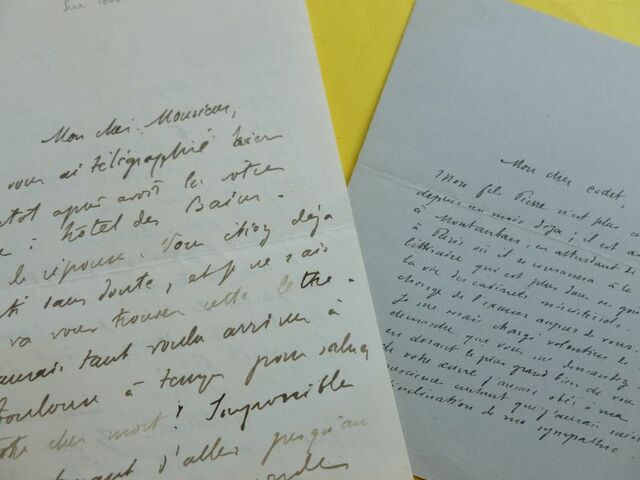 Mon cher Monsieur,
vous ai télégraphié hier
tôt après avoir lu votre
à hôtel des Bains.
de réponse. Vous étiez déjà
sans doute, et je ne sais
va vous trouver cette lettre.
aurais tant voulu arriver à
Toulouse à temps pour saluer
cher mort! Impossible
d'aller jusqu'au
Mon cher cadet,
Mon fils Pierre n'est plus
depuis un mois déjà; il est
à Montauban, en attendant de
à Paris où il se consacrera à la
littéraire qui est plus dans ses
la vie des cabinets ministériels.
charge de l'examen auprès de vous
Je me serais chargé volontiers de
démarche que vous me demandez
en disant le plus grand bien de vous
de votre œuvre j'aurais obéi à ma
conscience autant que j'aurais suivi
inclination de ma sympathie.